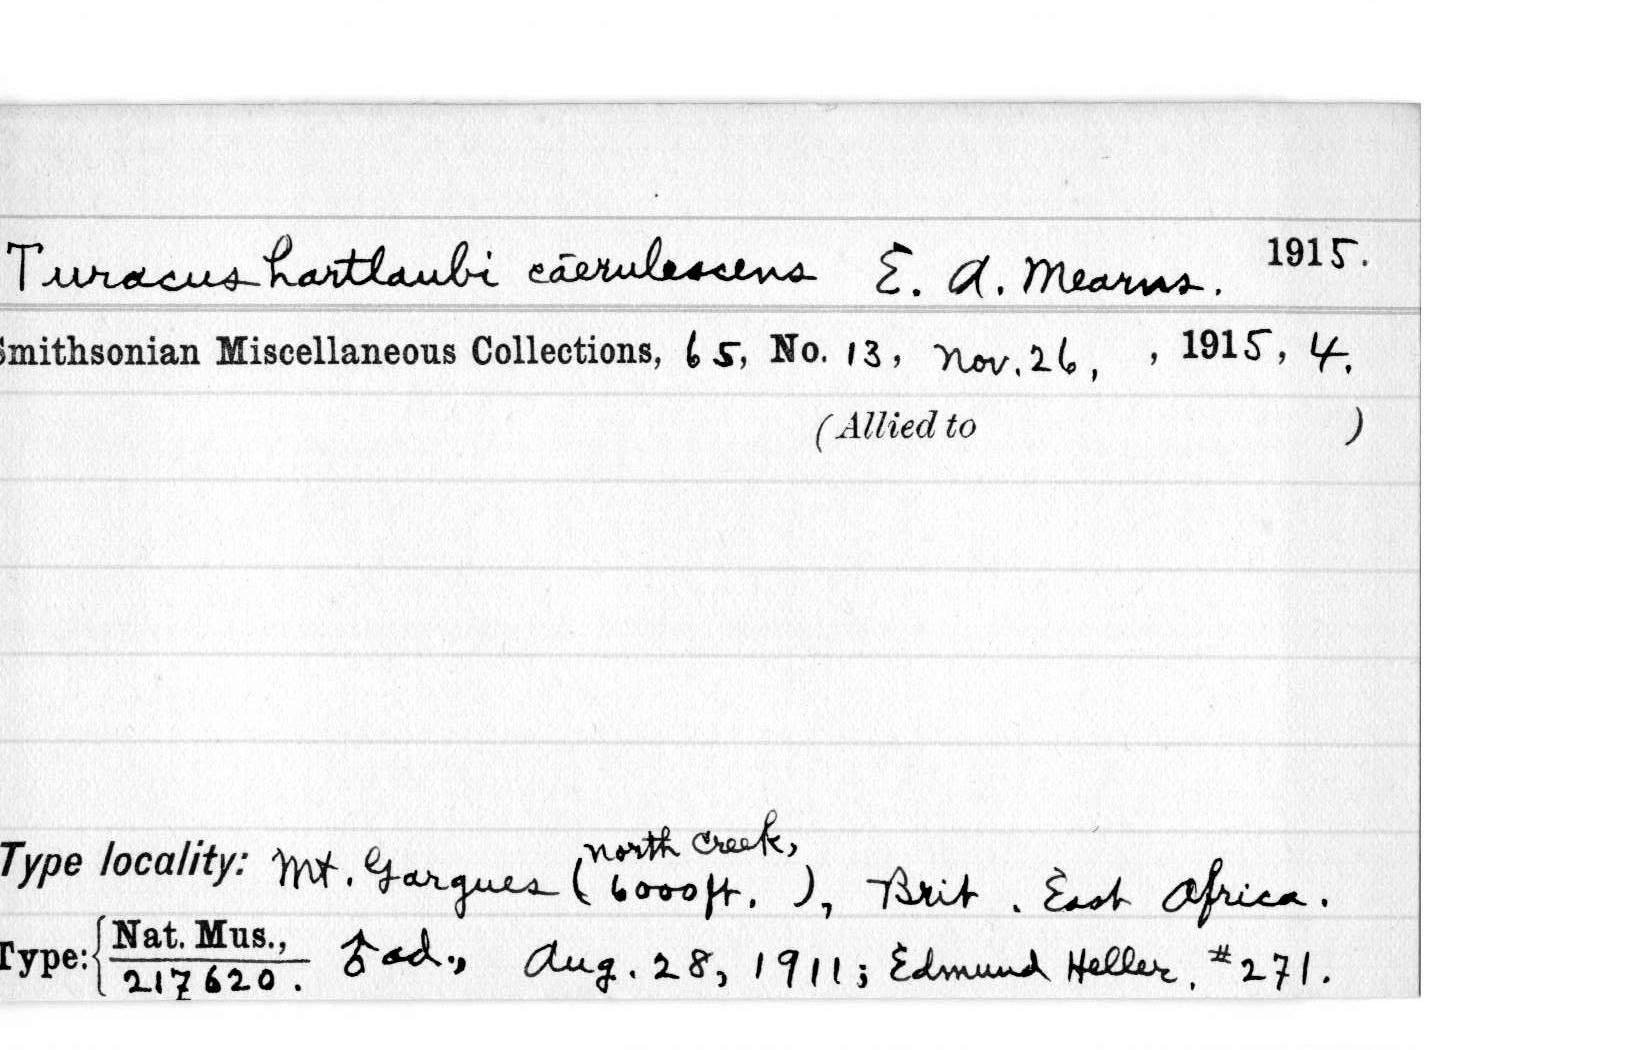 Turacus hartlaubi cāerulescens E. A. Mearns. 1915.
Smithsonian Miscellaneous Collections, 65, No. 13, Nov. 26, , 1915, 4.
(Allied to )
north Creek,
Type locality: Mt. Gargues (6000ft. ), Brit. East Africa.
Type: { Nat. Mus., ♂ ad., Aug. 28, 1911; Edmund Heller, #271.
217620.